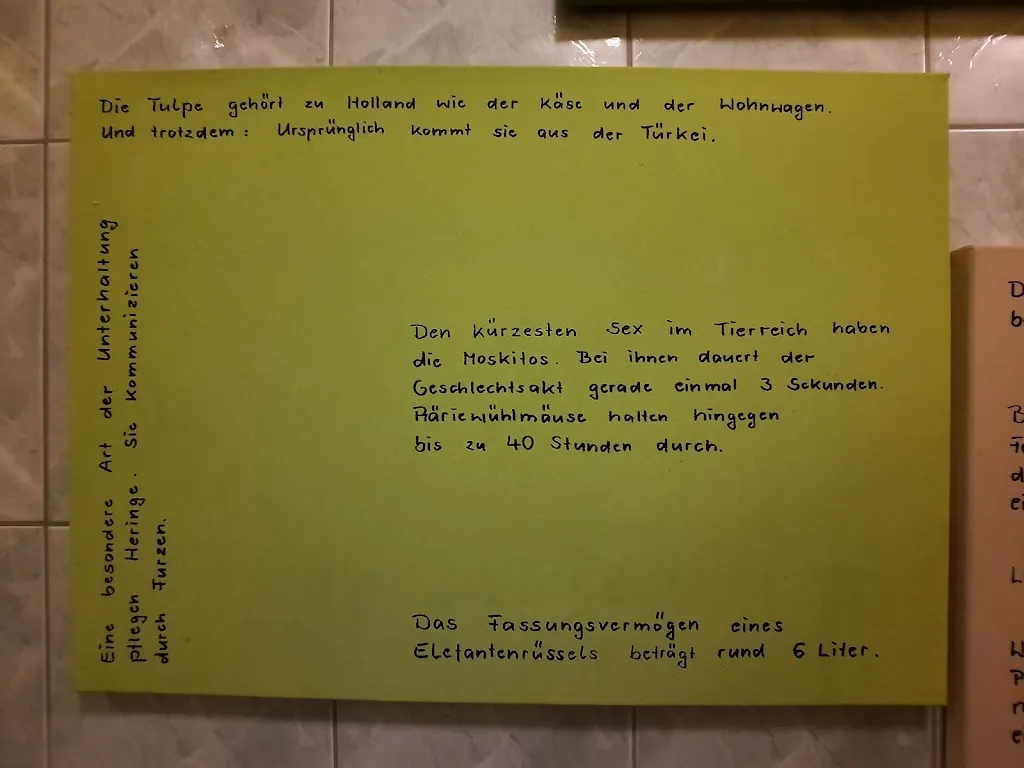 Die Tulpe gehört zu Holland wie der Käse und der Wohnwagen.
Und trotzdem: Ursprünglich kommt sie aus der Türkei.
Eine besondere Art der Unterhaltung
pflegen Heringe. Sie kommunizieren
durch Furzen.
Den kürzesten Sex im Tierreich haben
die Moskitos. Bei ihnen dauert der
Geschlechtsakt gerade einmal 3 Sekunden.
Präriewühlmäuse halten hingegen
bis zu 40 Stunden durch.
Das Fassungsvermögen eines
Elefantenrüssels beträgt rund 6 Liter.